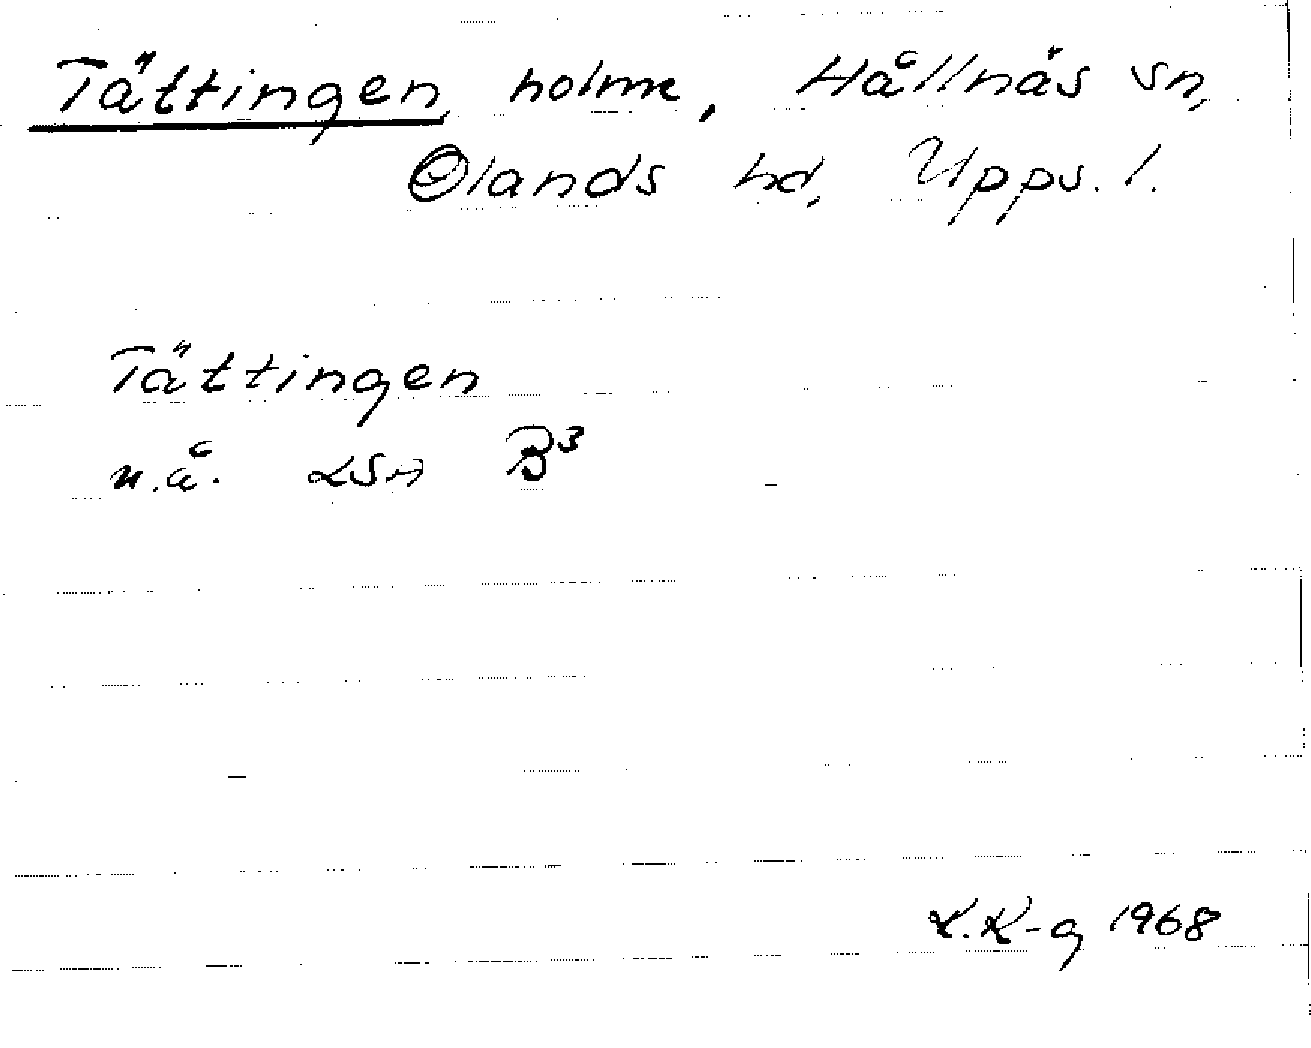 Tättingen, holme, Hållnäs sn,
Ølands hd, Upps. l.
Tättingen
n.å. LSA B³
K.K-g 1968